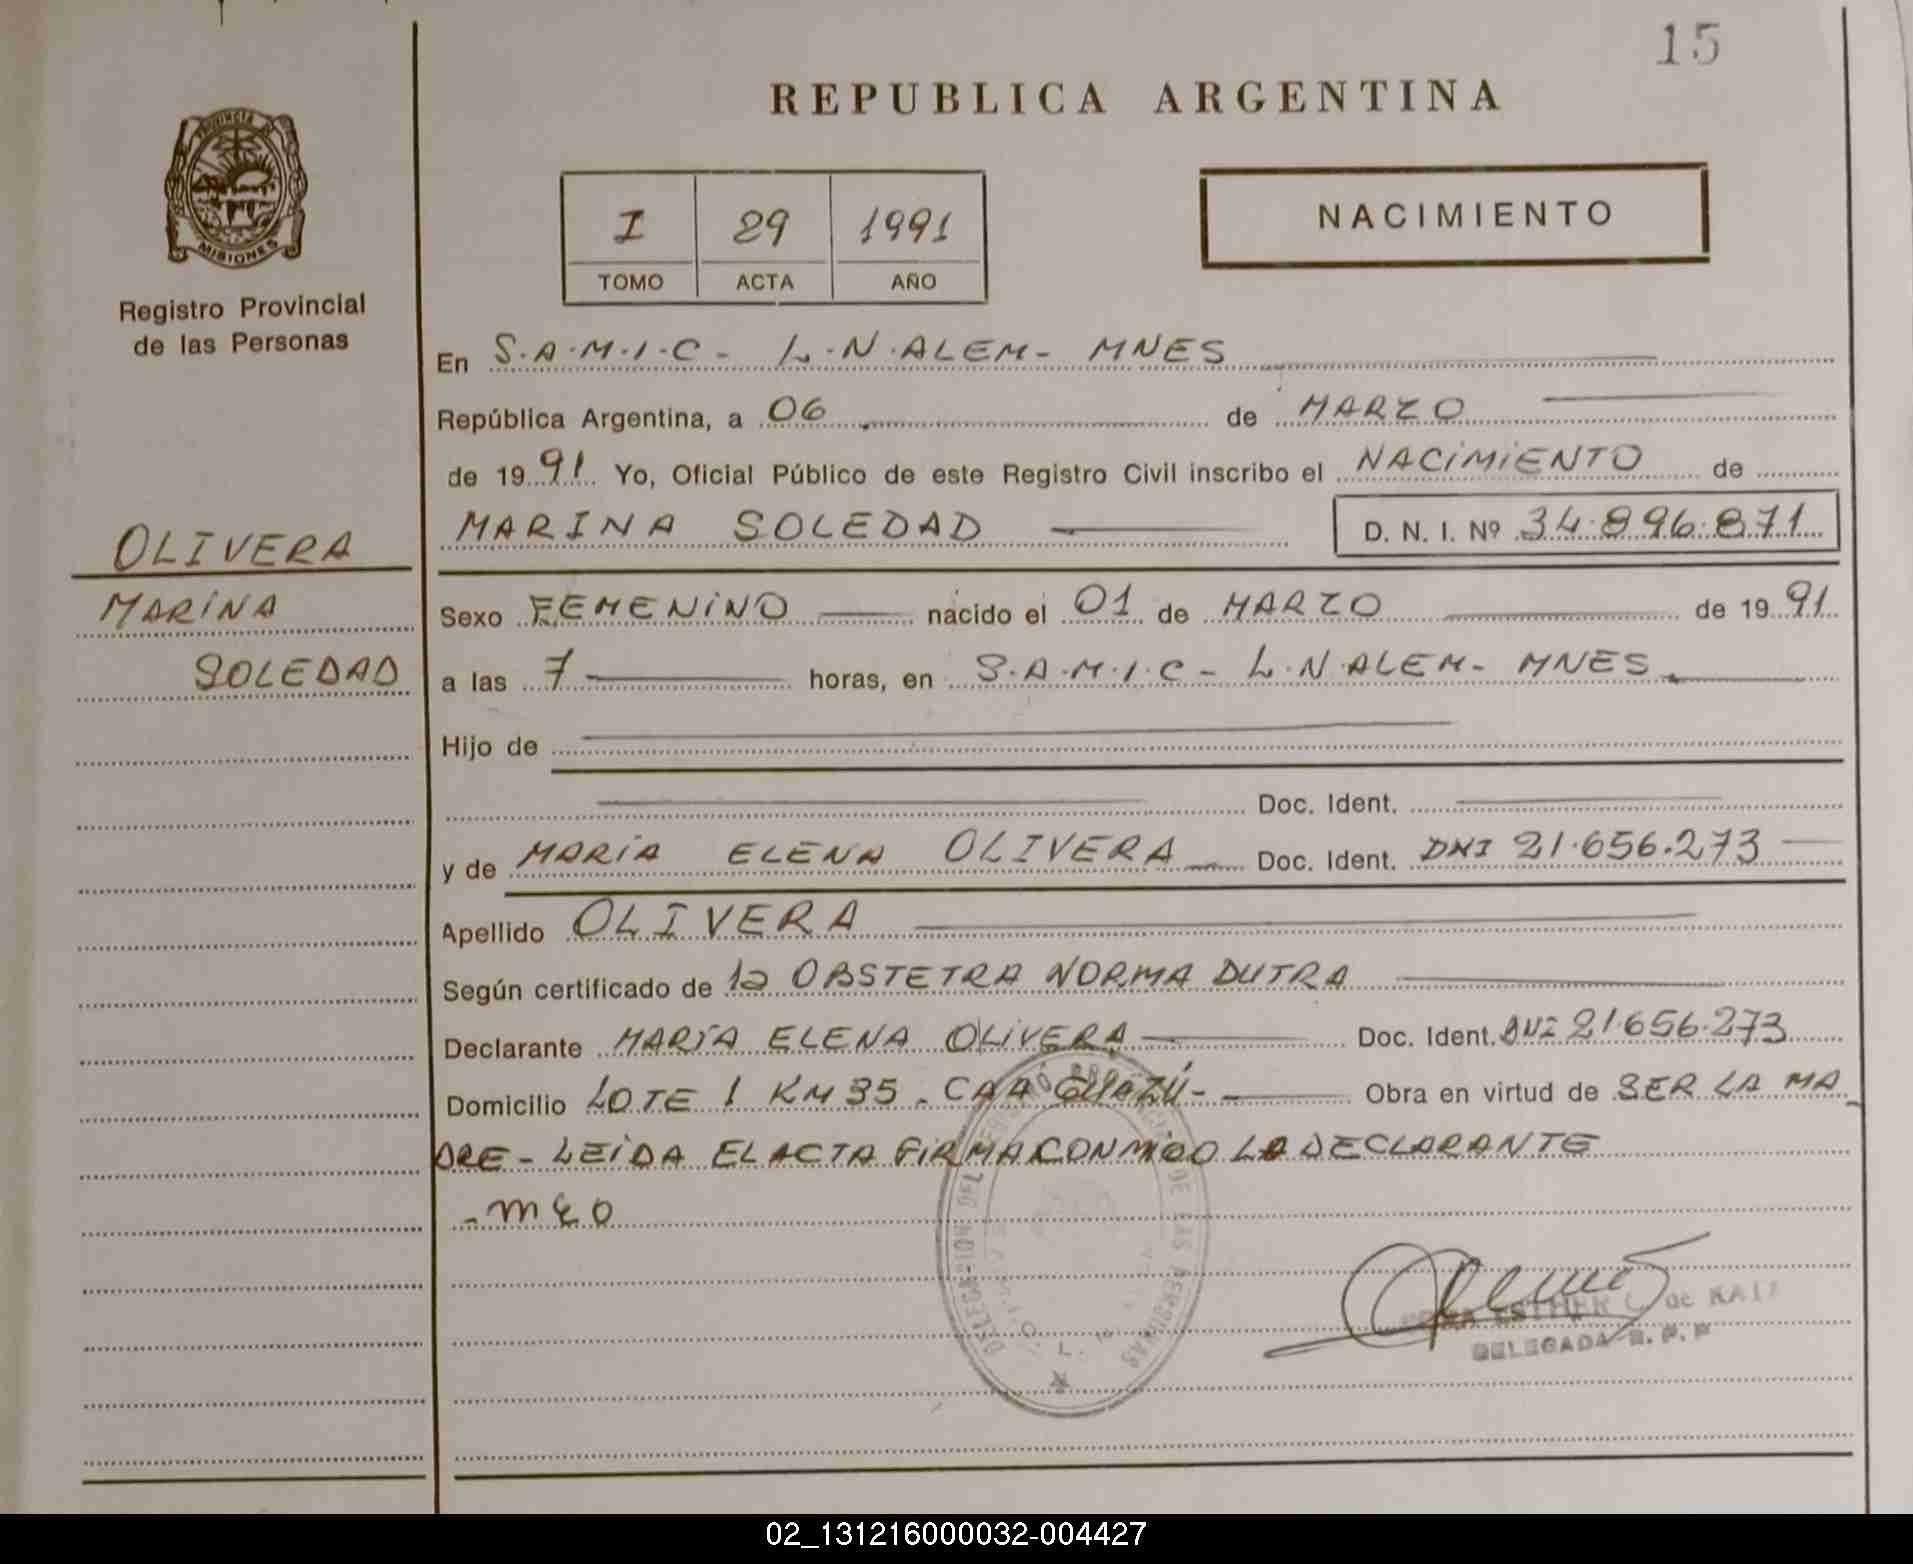 15
REPUBLICA ARGENTINA
PROVINCIA DE
MISIONES
Registro Provincial
de las Personas
I 29 1991
TOMO ACTA AÑO
NACIMIENTO
En S.A.M.I.C - L.N.ALEM - MNES
República Argentina, a 06 de MARZO
de 1991 Yo, Oficial Público de este Registro Civil inscribo el NACIMIENTO de
MARINA SOLEDAD D. N. I. Nº 34.896.871
OLIVERA
MARINA
SOLEDAD
Sexo FEMENINO nacido el 01 de MARZO de 1991
a las 7 horas, en S.A.M.I.C - L.N.ALEM - MNES
Hijo de
Doc. Ident.
y de MARÍA ELENA OLIVERA Doc. Ident. DNI 21.656.273
Apellido OLIVERA
Según certificado de la OBSTETRA NORMA DUTRA
Declarante MARÍA ELENA OLIVERA Doc. Ident. DNI 21.656.273
Domicilio LOTE 1 KM 35 - CAA GUAZÚ - Obra en virtud de SER LA MA
DRE - LEÍDA EL ACTA FIRMA CONMIGO LA DECLARANTE
- MEO
DE LAS PERSONAS
ESTHER C de KAIZ
DELEGADA R. P. P
02_131216000032-004427